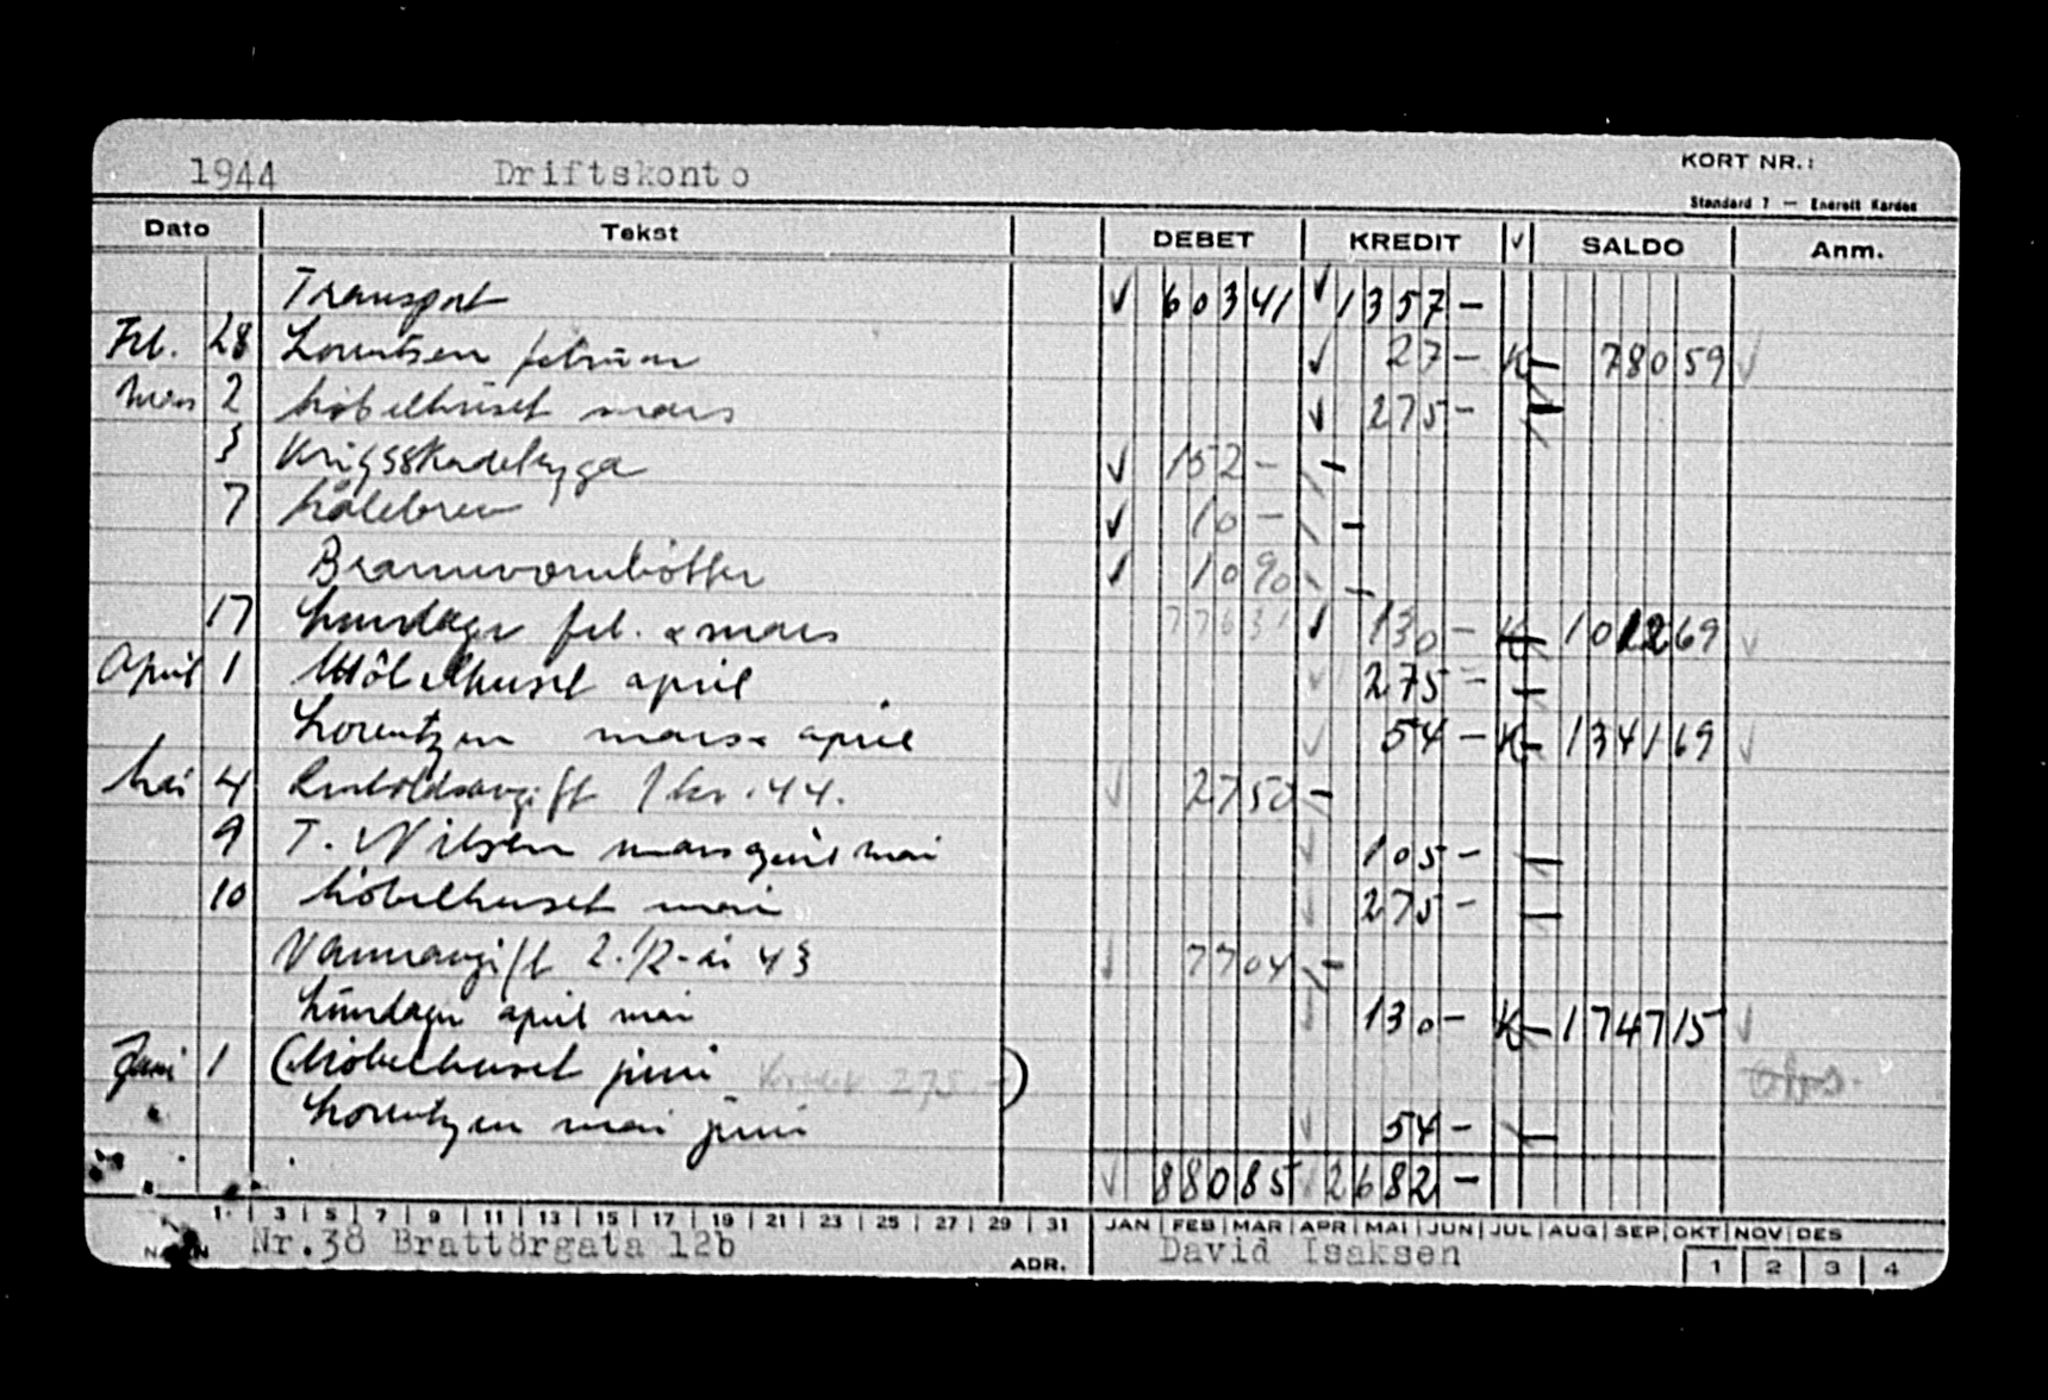 1944 Driftskonto KORT NR.:
Standard 7 — Enerett Kardex
Dato Tekst DEBET KREDIT √ SALDO Anm.
Transport √ 603 41 √ 1357 -
Feb. 28 Lorentzen februar √ 27 - K 780 59 √
Mars 2 Möbelhuset mars √ 275 -
3 Krigsskadetrygd √ 152 -
7 Målebrev √ 10 -
Brannvernbötter √ 10 90
17 Lundager feb. & mars 776 31 √ 130 - K 1012 69 √
April 1 Möbelhuset april √ 275 -
Lorentzen mars & april √ 54 - K 1341 69 √
Mai 4 Renholdsavgift 1 kv. 44. √ 27 50
9 T. Nilsen mars april mai √ 105 -
10 Möbelhuset mai √ 275 -
Vannavgift 2. 1/2-år 43 √ 77 04
Lundager april mai √ 130 - K 1747 15 √
Juni 1 (Möbelhuset juni 275 -) obs.
Lorentzen mai juni √ 54 -
√ 880 85 √ 2682 -
1 3 5 7 9 11 13 15 17 19 21 23 25 27 29 31 JAN FEB MAR APR MAI JUN JUL AUG SEP OKT NOV DES
NAVN Nr.38 Brattörgata 12b ADR. David Isaksen 1 2 3 4